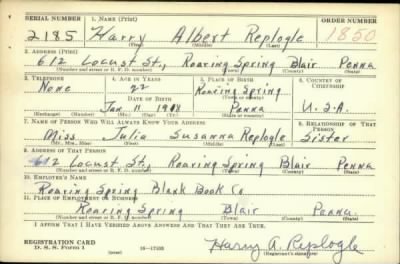 SERIAL NUMBER 1. NAME (Print) ORDER NUMBER
2185 Harry Albert Replogle 1850
(First) (Middle) (Last)
2. ADDRESS (Print)
612 Locust St., Roaring Spring Blair Penna
(Number and street or R. F. D. number) (Town) (County) (State)
3. TELEPHONE 4. AGE IN YEARS 5. PLACE OF BIRTH 6. COUNTRY OF CITIZENSHIP
None 22 Roaring Spring
DATE OF BIRTH (Town or county)
Jan 11 1918 Penna U.S.A.
(Exchange) (Number) (Mo.) (Day) (Yr.) (State or country)
7. NAME OF PERSON WHO WILL ALWAYS KNOW YOUR ADDRESS 8. RELATIONSHIP OF THAT PERSON
Miss Julia Susanna Replogle Sister
(Mr., Mrs., Miss) (First) (Middle) (Last)
9. ADDRESS OF THAT PERSON
612 Locust St., Roaring Spring Blair Penna
(Number and street or R. F. D. number) (Town) (County) (State)
10. EMPLOYER'S NAME
Roaring Spring Blank Book Co
11. PLACE OF EMPLOYMENT OR BUSINESS
Roaring Spring Blair Penna.
(Number and street or R. F. D. number) (Town) (County) (State)
I AFFIRM THAT I HAVE VERIFIED ABOVE ANSWERS AND THAT THEY ARE TRUE.
REGISTRATION CARD
D. S. S. Form 1 (over) Harry A. Replogle
(Registrant's signature)